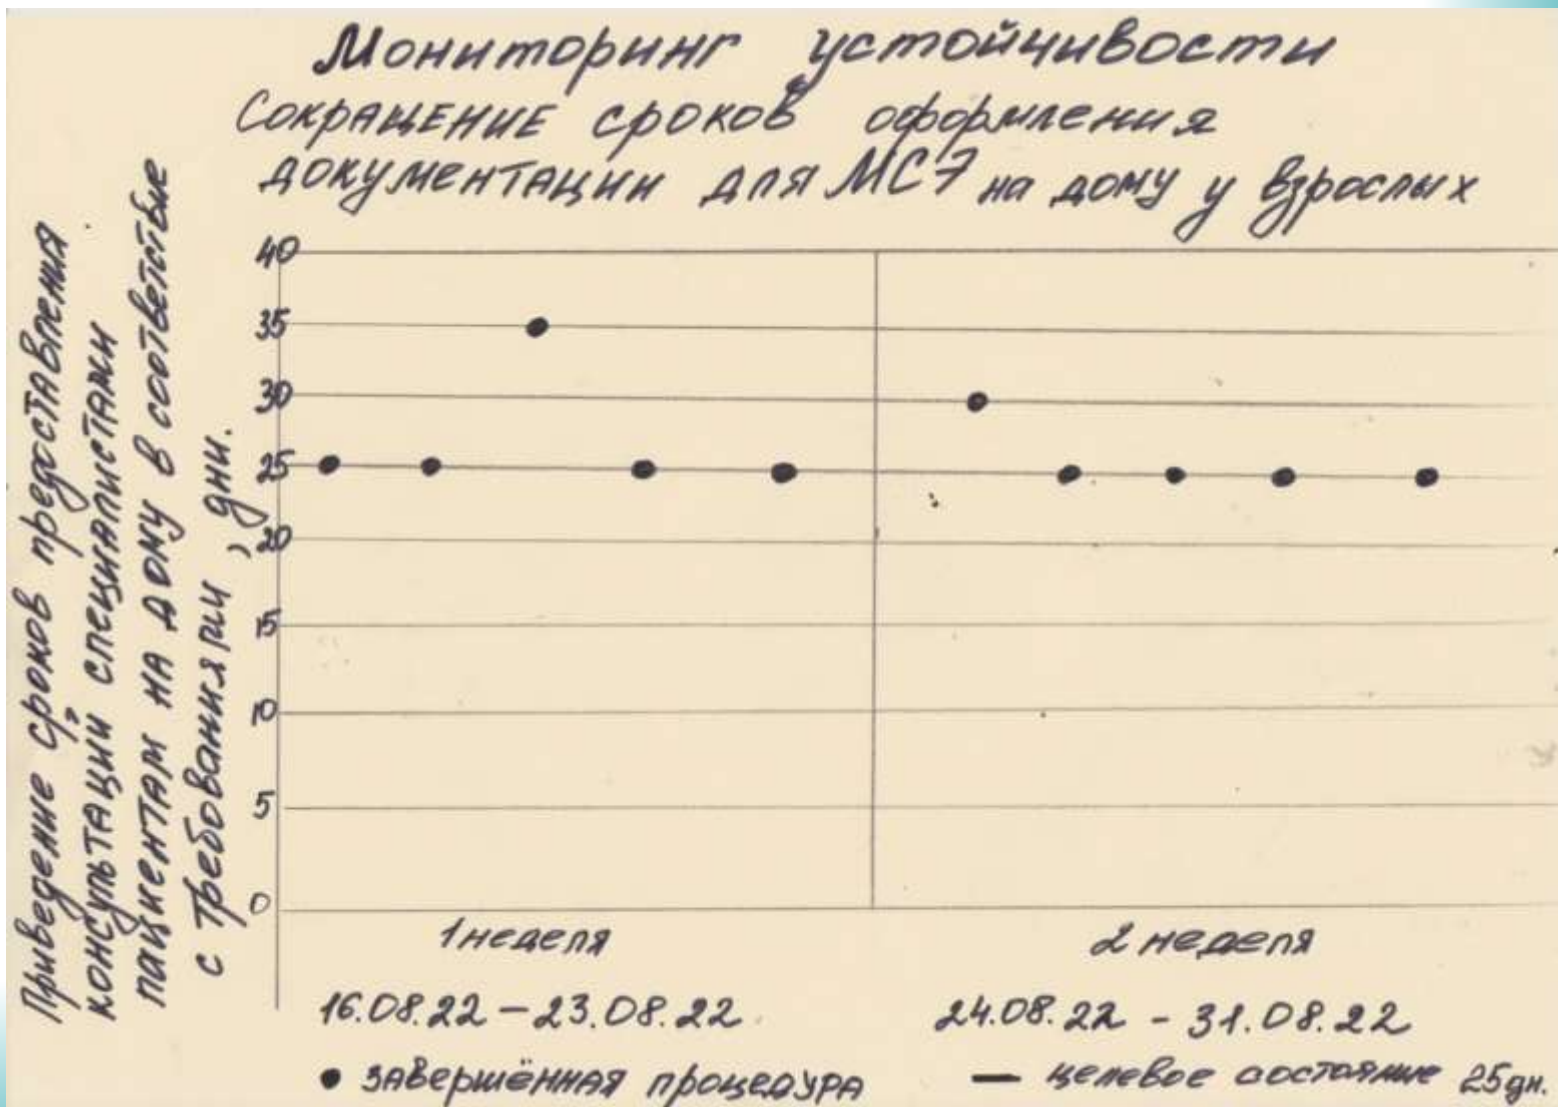 Мониторинг устойчивости
Сокращение сроков оформления
документации для МСЭ на дому у взрослых
Приведение сроков предоставления
консультаций специалистами
пациентам на дому в соответствие
с требованиями, дни.
40
35
30
25
20
15
10
5
0
1 неделя
2 неделя
16.08.22 – 23.08.22
24.08.22 - 31.08.22
завершённая процедура
целевое состояние 25дн.